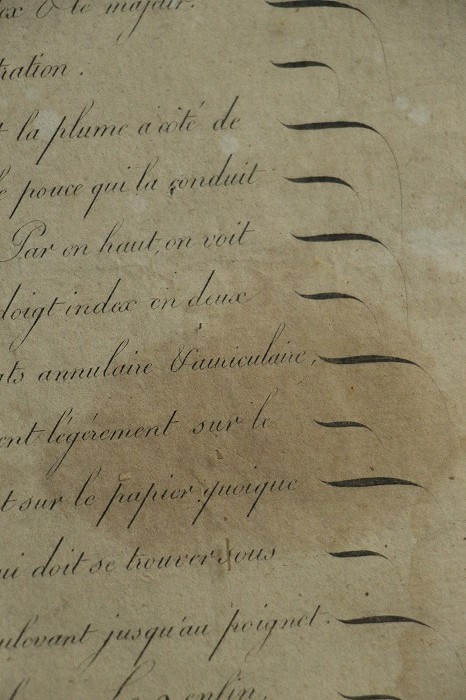 & le majeur.
ration.
t la plume a côté de
le pouce qui la conduit
Par en haut, on voit
doigt index en deux
ts annulaire & auriculaire,
ent légérement sur le
t sur le papier quoique
ui doit se trouver sous
ulevant jusqu'au poignet.